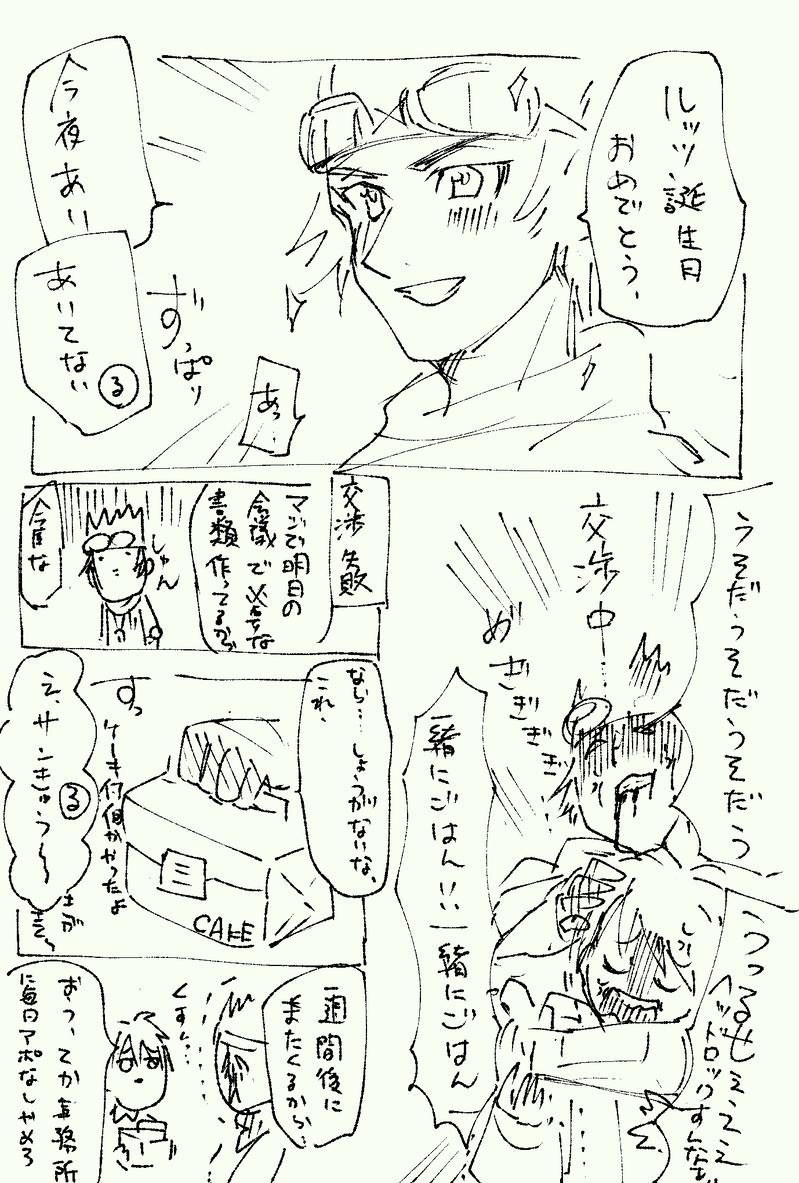 ルッツ、誕生日
おめでとう、
今夜あい
あいてない
る
ずっぱり
あっ…
うそだうそだうそだう
交渉中……
めぎぎぎぎ
一緒にごはん!!一緒にごはん
うっうるせぇてえ
ヘッドロックすんなっ!!
交渉失敗
マジで明日の
会議で必要な
書類作ってるから
今度な
しゅん
なら…しょうがないな、
これ、
すっ
ケーキ何個か
かったよ
CAKE
え、サンきゅう〜
る
一週間後に
またくるから…
くすん…
おう、てか事務所
に毎日アポなしやめろ